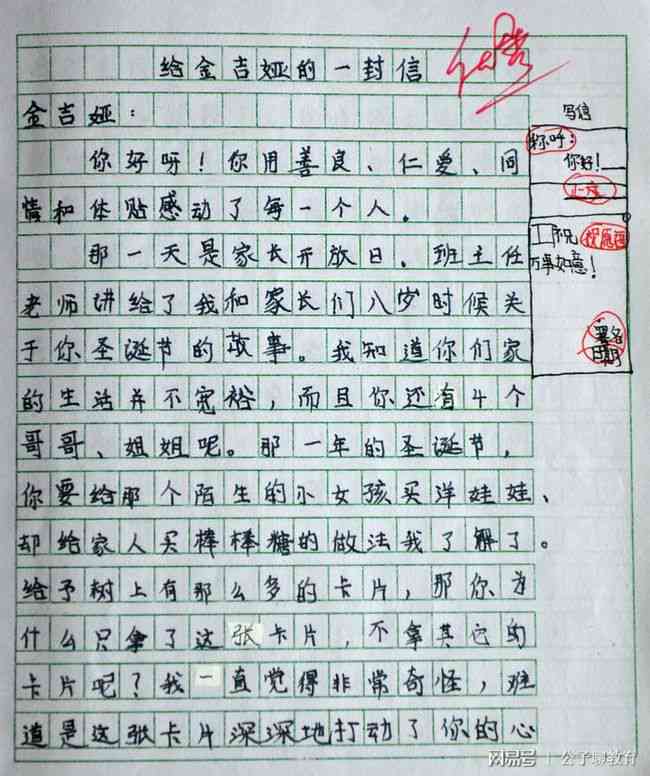 给金吉娅的一封信
金吉娅：
你好呀！你用善良、仁爱、同
情和体贴感动了每一个人。
那一天是家长开放日，班主任
老师讲给了我和家长们八岁时候关
于你圣诞节的故事。我知道你们家
的生活并不宽裕，而且你还有4个
哥哥、姐姐呢。那一年的圣诞节，
你要给那个陌生的小女孩买洋娃娃、
却给家人买棒棒糖的做法我了解了。
给予树上有那么多的卡片，那你为
什么只拿了这张卡片，不拿其它的
卡片呢？我一直觉得非常奇怪，难
道是这张卡片深深地打动了你的心
写信
称呼：
你好！
正文
祝
万事如意！
署名
日期
网易号 | 公子聊教育